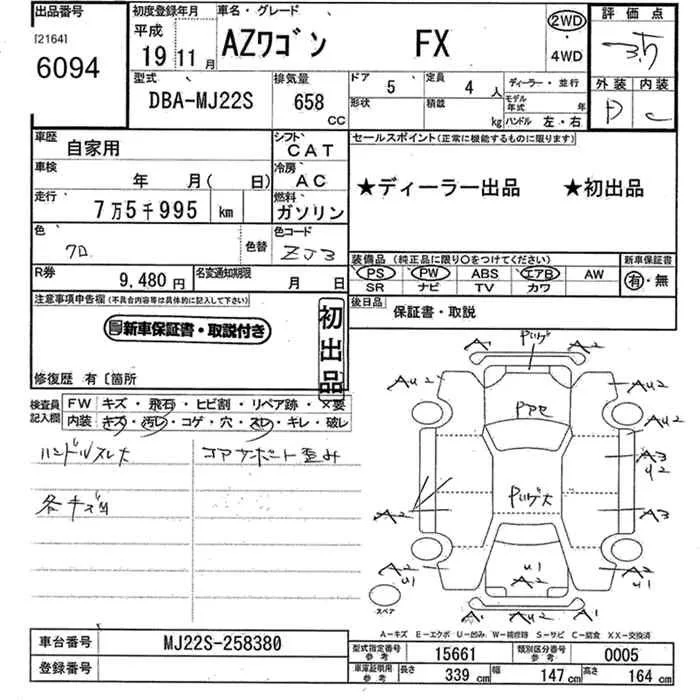 出品番号
[2164]
6094
初度登録年月
平成
19 11 月
車名・グレード
AZワゴン FX
2WD
・
4WD
評価点
3.5
型式
DBA-MJ22S
排気量
658 CC
ドア 5
定員 4 人
ディーラー・並行
形状
積載 kg
モデル年式 年
ハンドル 左・右
外装 内装
D C
車歴
自家用
シフト
CAT
車検
年 月( 日)
冷房
AC
走行
7万5千995 km
燃料
ガソリン
色
クロ
色替
色コード
ZJ3
R券
9,480 円
名変通知期限
月 日
セールスポイント(正常に機能するものに限ります)
★ディーラー出品 ★初出品
装備品(純正品に限り○をつけてください)
PS PW ABS エアB AW
SR ナビ TV カワ
新車保証書
有・無
後日品
保証書・取説
注意事項申告欄(不具合内容等は具体的に記入して下さい)
新車保証書・取説付き
初出品
修復歴 有〔箇所
検査員記入欄
FW キズ・飛石・ヒビ割・リペア跡・×要
内装 キズ・汚レ・コゲ・穴・スレ・キレ・破レ
ハンドルスレ大
コアサポート歪み
各キズ
A2 A2
AU2 AU2
AU2
A3
U2
A2 A3
A2 U1
A2 U1
U1 A2
A1 AU2 A1
スペア
A-キズ E-エクボ U-凹み W-補修跡 S-サビ C-腐食 XX-交換済
車台番号
MJ22S-258380
登録番号
型式指定番号 参考 15661
類別区分番号 参考 0005
車庫証明用 参考 長さ 339 cm 幅 147 cm 高さ 164 cm